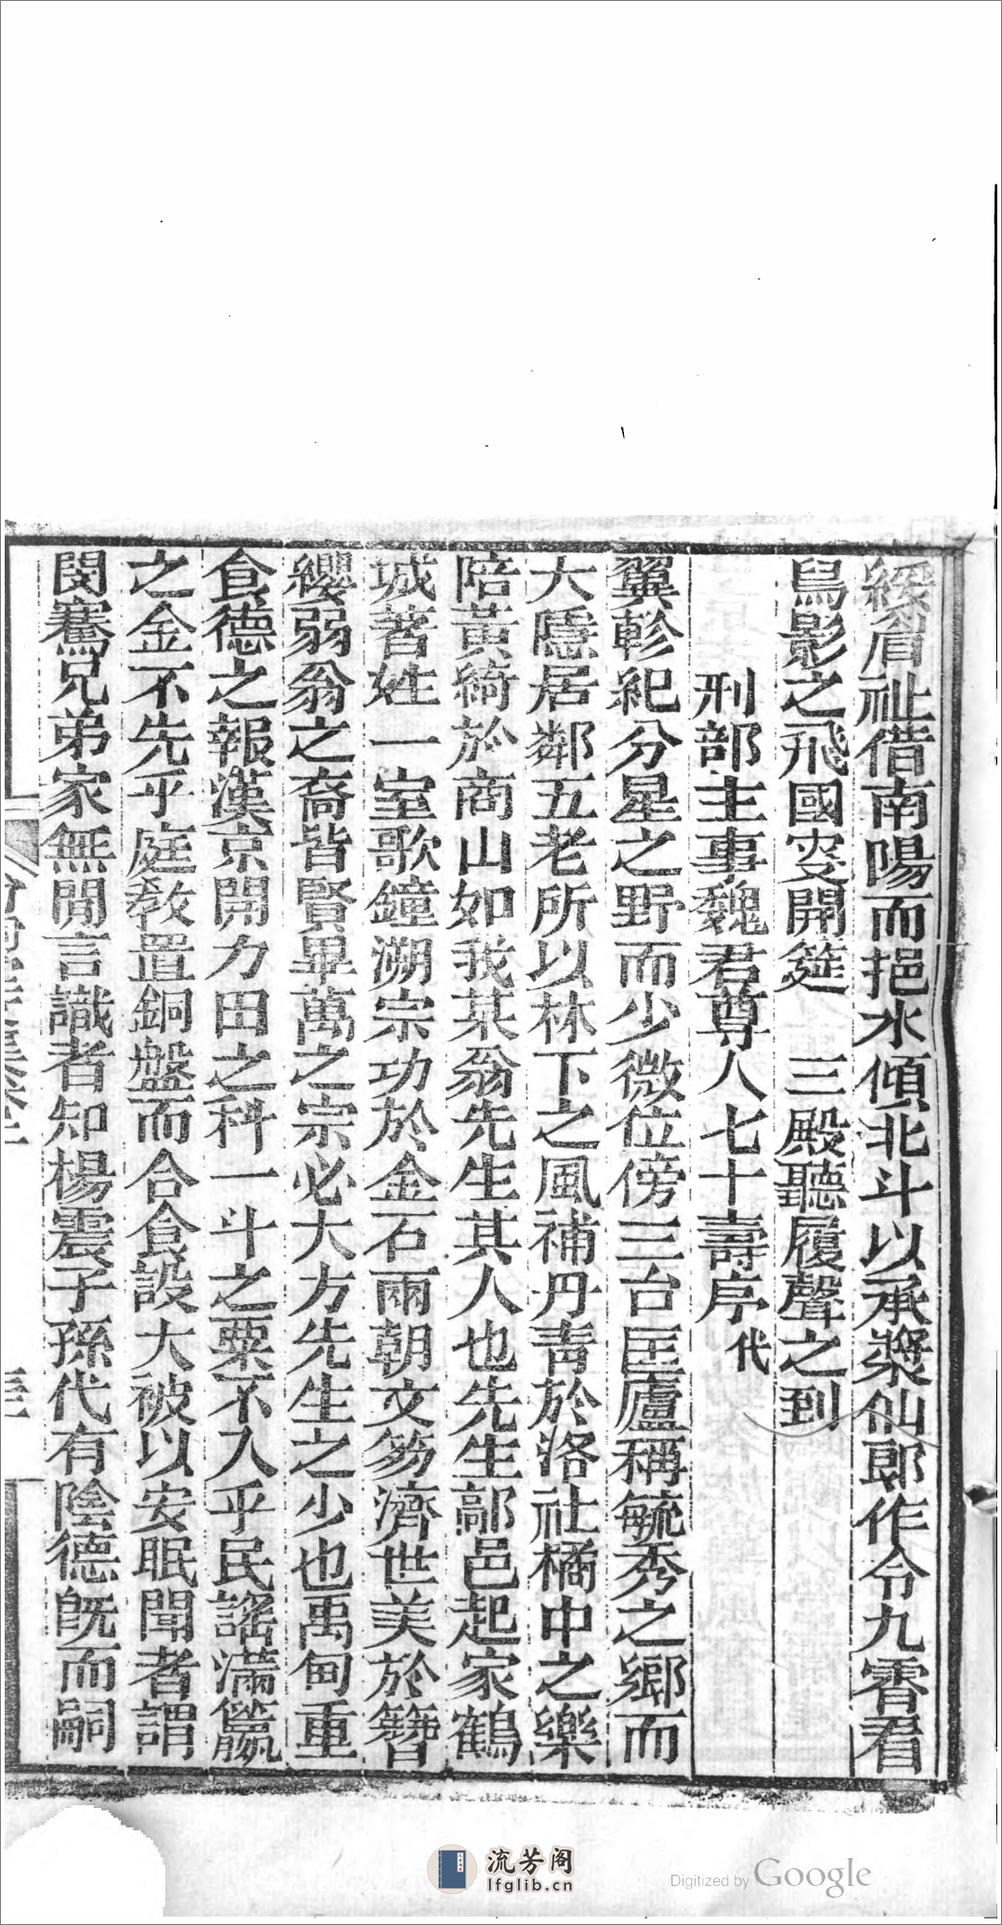 綏眉祉借南陽而挹水傾北斗以承漿仙郎作令九霄看
鳧影之飛國叟開筵 三殿聽履聲之到
刑部主事魏君尊人七十壽序代
翼軫紀分星之野而少微位傍三台匡廬稱毓秀之鄉而
大隱居鄰五老所以林下之風補丹青於洛社橘中之樂
陪黃綺於商山如我某翁先生其人也先生鄗邑起家鶴
城著姓一室歌鐘溯宗功於金石兩朝文笏濟世美於簪
纓弱翁之裔皆賢畢萬之宗必大方先生之少也禹甸重
食德之報漢京開力田之科一斗之粟不入乎民謠滿籯
之金不先乎庭教置銅盤而合食設大被以安眠聞者謂
閔騫兄弟家無閒言識者知楊震子孫代有陰德旣而嗣
流芳阁
lfglib.cn
Digitized by Google